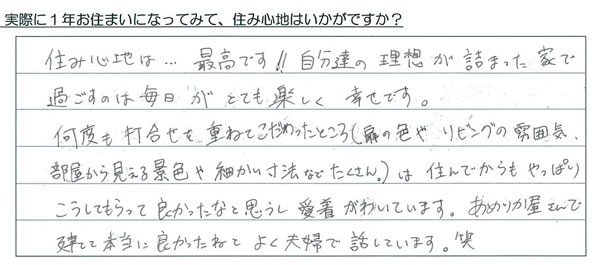 実際に1年お住まいになってみて、住み心地はいかがですか？
住み心地は… 最高です!! 自分達の 理想が 詰まった 家で
過ごすのは毎日が とても楽しく 幸せです。
何度も 打合せを 重ねてこだわったところ(扉の色や リビングの雰囲気、
部屋から見える景色や 細かい寸法などたくさん。)は 住んでからも やっぱり
こうしてもらって 良かったなと思うし 愛着 がわいています。あめりか屋さんで
建てて 本当に良かったねと よく夫婦で 話しています。笑